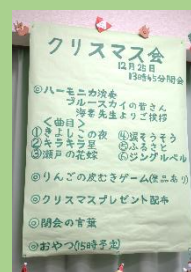 クリスマス会
12月25日
13時45分開会
◎ハーモニカ演奏
ブルースカイの皆さん
先生よりご挨拶
＜曲目＞
①きよしこの夜
④
②キラキラ星
⑤ふるさと
③瀬戸の花嫁
⑥ジングルベル
◎りんごの皮むきゲーム(景品あり)
◎クリスマスプレゼント配布
◎閉会の言葉
◎おやつ(15時予定)